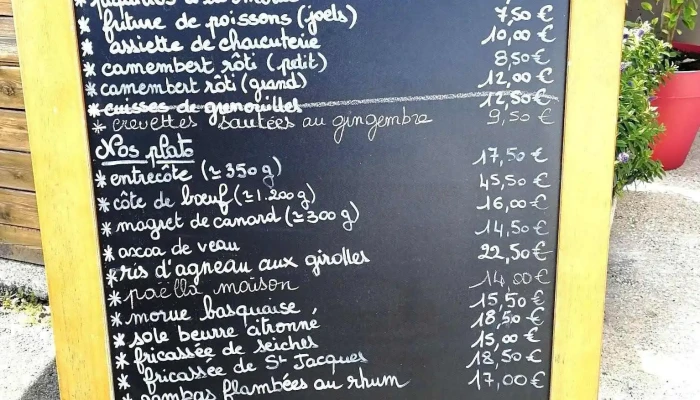 * friture de poissons (joels) 7,50 €
* assiette de charcuterie 10,00 €
* camembert rôti (petit) 8,50 €
* camembert rôti (grand) 12,00 €
* cuisses de grenouilles 12,50 €
* crevettes sautées au gingembre 9,50 €
Nos plats
* entrecôte (≃ 350 g) 17,50 €
* côte de bœuf (≃ 1.200 g) 45,50 €
* magret de canard (≃ 300 g) 16,00 €
* axoa de veau 14,50 €
* ris d'agneau aux girolles 22,50 €
* paëlla maison 14,00 €
* morue basquaise 15,50 €
* sole beurre citronné 18,50 €
* fricassée de seiches 15,00 €
* fricassée de St Jacques 18,50 €
* gambas flambées au rhum 17,00 €